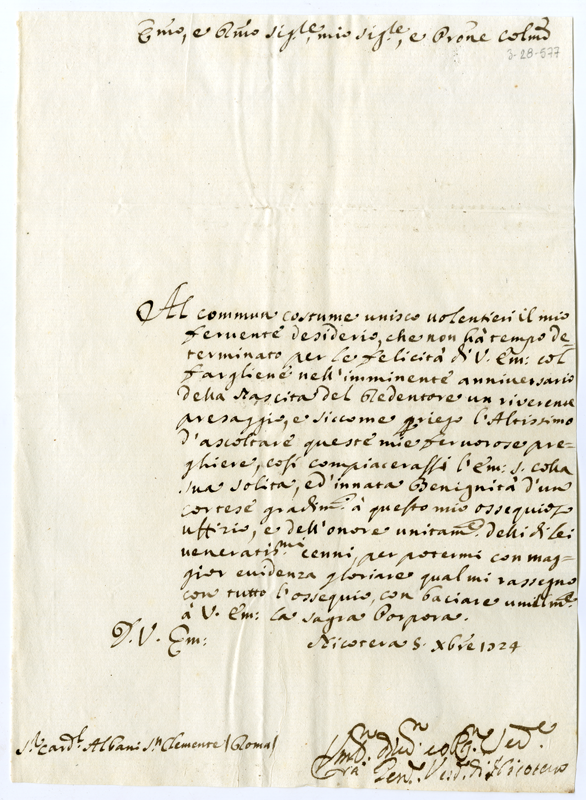 Emo, e Rmo sigre, mio sigre, e Prone colmo
3-28-577
Al commun costume unisco volentieri il mio
fervente desiderio, che non hà tempo de-
terminato per le felicità di V. Em: col
fargliene nell'imminente anniversario
della Nascita del Redentore un riverente
presaggio, e siccome priego l'Altissimo
d'ascoltare queste mie fervorose pre-
ghiere, così compiacerassi l'Em: S. colla
sua solita, ed innata Benignità d'un
cortese gradimto à questo mio ossequioso
uffizio, e dell'onore unitamte delli di lei
veneratismi cenni, per potermi con mag-
gior evidenza gloriare qual mi rassegno
con tutto l'ossequio, con baciare umilmte
à V. Em: la sagra Porpora.
D. V. Em:
Nicotera 8. Xbre 1724
Sr Cardl Albani Sn Clemente (Roma)
Servre
di Nicotera